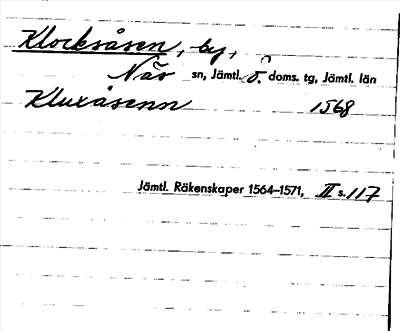 Klocksåsen, by,
Näs sn, Jämtl. ö. doms. tg, Jämtl. län
Kluxåsenn 1568
Jämtl. Räkenskaper 1564–1571, II s. 117